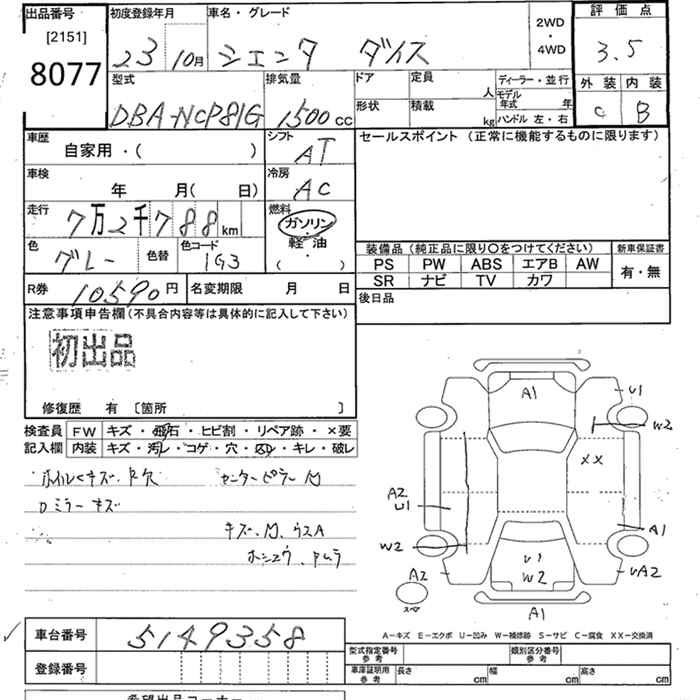 出品番号
[2151]
8077
初度登録年月
23 10月
車名・グレード
シエンタ ダイス
2WD
・
4WD
評価点
3.5
外装 内装
C B
型式
DBA-NCP81G
排気量
1500 CC
ドア
定員
人
形状
積載
kg
ディーラー・並行
モデル年式 年
ハンドル 左・右
車歴
自家用・( )
シフト
AT
セールスポイント (正常に機能するものに限ります)
車検
年 月( 日)
冷房
AC
走行
7万2千788km
燃料
ガソリン
軽油
・
( )
色
グレー
色替
色コード
1G3
装備品(純正品に限り○をつけてください)
新車保証書
PS PW ABS エアB AW
SR ナビ TV カワ
有・無
R券
10590円
名変期限 月 日
後日品
注意事項申告欄(不具合内容等は具体的に記入して下さい)
初出品
修復歴 有 [箇所 ]
検査員記入欄
FW キズ・飛石・ヒビ割・リペア跡・×要
内装 キズ・汚レ・コゲ・穴・凹・キレ・破レ
センターピラー
ミラーキズ
A1
U1
W2
XX
A2
U1
A1
W2
U1
W2
A2
UA2
スペア
A1
A-キズ E-エクボ U-凹み W-補修跡 S-サビ C-腐食 XX-交換済
車台番号 5149358
登録番号
型式指定番号 参考
類別区分番号 参考
車庫証明用 参考
長さ cm 幅 cm 高さ cm
希望出品コーナー